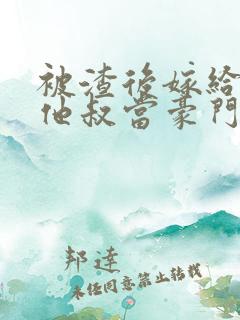 被渣後嫁給
他叔當豪門
邦達
未任同意禁止转载